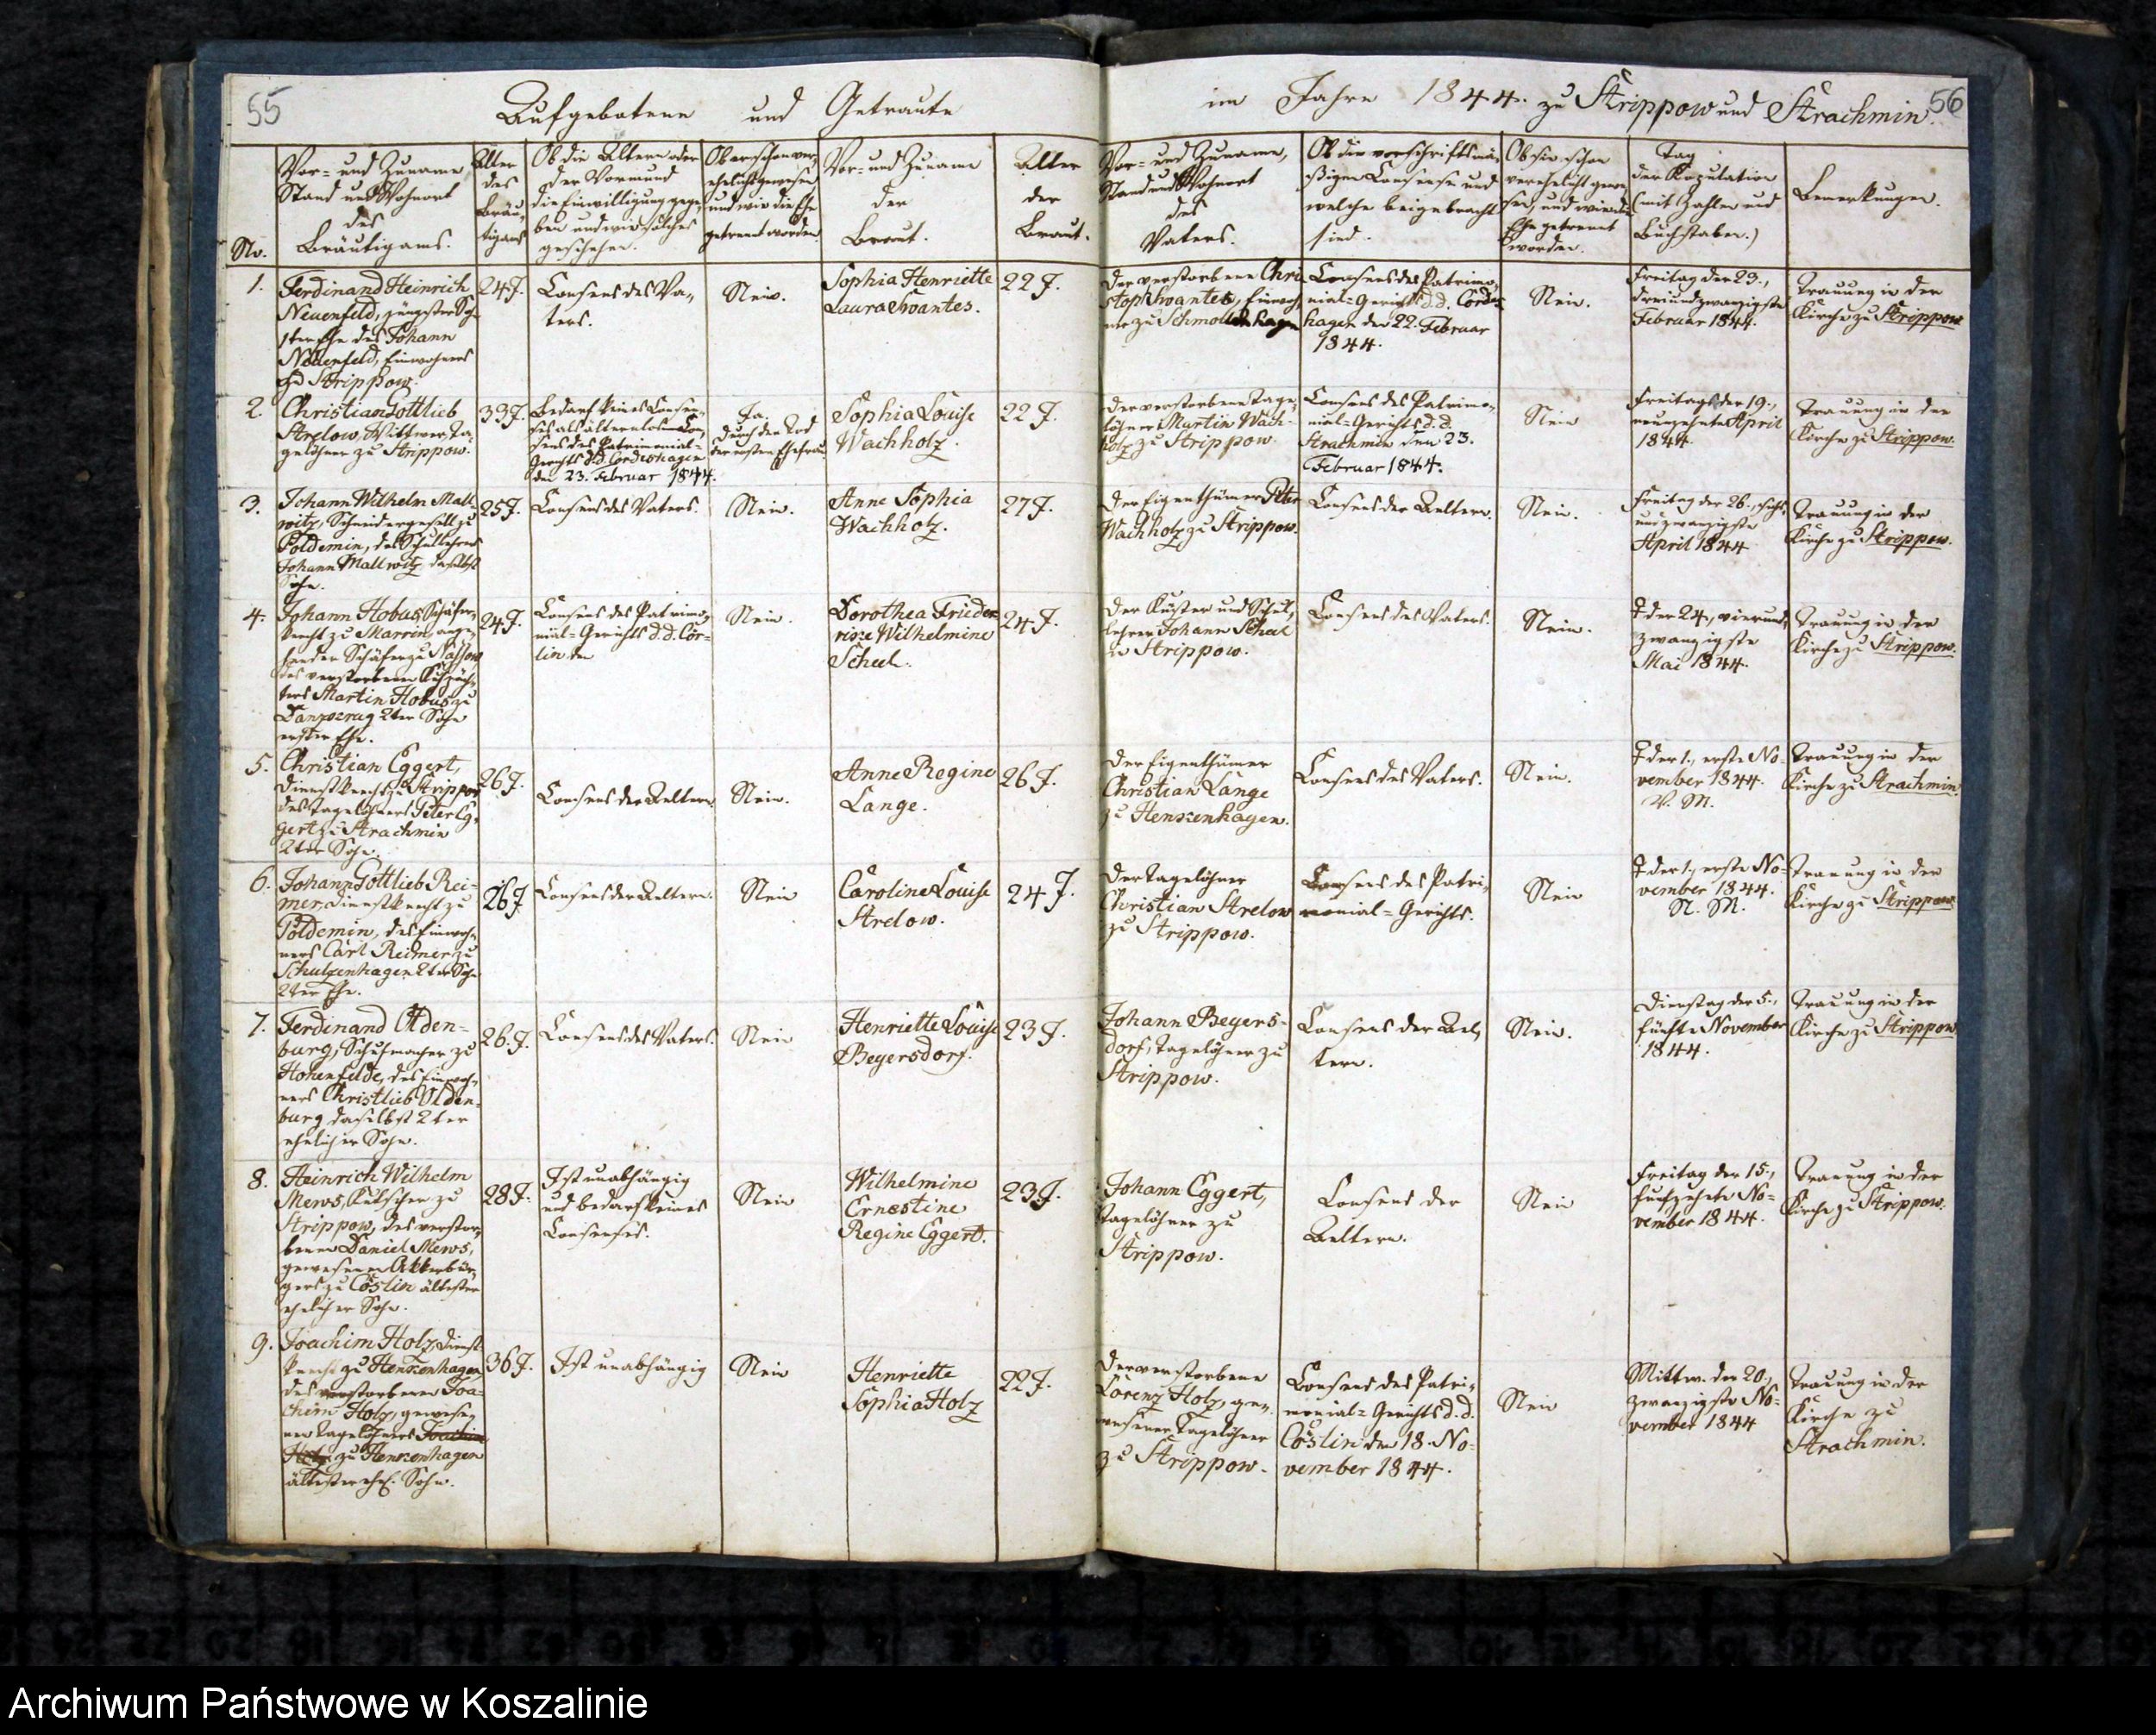 55
Aufgebotene und Getraute
im Jahre 1844. zu Strippow und Strachmin.
56
No.
Vor- und Zuname
Stand und Wohnort
des
Bräutigams.
Alter
des
Bräu-
tigams
Ob die Altern oder
der Vormund
die Einwilligung gege-
ben und wie solches
geschehen.
Ob er schon ver-
ehelicht gewesen
und wie die Ehe
getrennt worden.
Vor- und Zuname
der
Braut.
Alter
der
Braut.
Vor- und Zuname,
Stand und Wohnort
des
Vaters.
Ob die vorschriftsmä-
ßigen Consense und
welche beigebracht
sind.
Ob sie schon
verehelicht gewe-
sen, und wie die
Ehe getrennt
worden.
Tag
der Kopulation
(mit Zahlen und
Buchstaben.)
Bemerkungen.
1.
Ferdinand Heinrich
Neuenfeld, jüngster Sohn
1ter Ehe des Johann
Neuenfeld, Einwohners
zu Strippow.
24 J.
Consens des Va-
ters.
Nein.
Sophia Henriette
Laura Swantes.
22 J.
Der verstorbene Chri
stoph Swantes, Einwoh-
ner zu Schmollenhagen
Consens des Patrimo-
nial-Gerichts d. d. Cordes
hagen den 22. Februar
1844.
Nein.
Freitag der 23.,
dreiundzwanzigste
Februar 1844.
Trauung in der
Kirche zu Strippow
2.
Christian Gottlieb
Strelow, Wittwer, Ta-
gelöhner zu Strippow.
33 J.
Bedarf keines Consen-
ses als älternlos. Con-
sens des Patrimonial-
Gerichts d. d. Cordeshagen
den 23. Februar 1844.
Ja.
Durch den Tod
der ersten Ehefrau.
Sophia Louise
Wachholz.
22 J.
Der verstorbene Tage-
löhner Martin Wach-
holz zu Strippow.
Consens des Patrimo-
nial-Gerichts d. d.
Strachmin den 23.
Februar 1844.
Nein
Freitags der 19.,
neunzehnte April
1844.
Trauung in der
Kirche zu Strippow.
3.
Johann Wilhelm Mall-
witz, Schneidergesell zu
Poldemin, des Schullehrers
Johann Mallwitz daselbst
Sohn.
25 J.
Consens des Vaters.
Nein.
Anne Sophia
Wachholz.
27 J.
Der Eigenthümer Peter
Wachholz zu Strippow.
Consens der Aeltern.
Nein.
Freitag der 26., sechs-
undzwanzigste
April 1844
Trauung in der
Kirche zu Strippow.
4.
Johann Hobus, Schäfer-
knecht zu Marrin, ange-
hender Schäfer zu Nassow
des verstorbenen Kuhpäch-
ters Martin Hobus zu
2ter Sohn
erster Ehe.
24 J.
Consens des Patrimo-
nial-Gerichts d. d. Cör-
lin den
Nein.
Dorothea Friede-
rike Wilhelmine
Scheel.
24 J.
Der Küster und Schul-
lehrer Johann Scheel
zu Strippow.
Consens des Vaters.
Nein.
♀ der 24., vierund-
zwanzigste
Mai 1844.
Trauung in der
Kirche zu Strippow.
5.
Christian Eggert,
Dienstknecht zu Strippow
des Tagelöhners Peter Eg-
gert zu Strachmin
2ter Sohn.
26 J.
Consens der Aeltern
Nein.
Anne Regine
Lange.
26 J.
Der Eigenthümer
Christian Lange
zu Henkenhagen.
Consens des Vaters.
Nein.
♀ der 1., erste No-
vember 1844.
V. M.
Trauung in der
Kirche zu Strachmin.
6.
Johann Gottlieb Rei-
mer, Dienstknecht zu
Poldemin, des Einwoh-
ners Carl Reimer zu
Schulzenhagen 2ter Sohn
2ter Ehe.
26 J
Consens der Aeltern.
Nein
Caroline Louise
Strelow.
24 J.
Der Tagelöhner
Christian Strelow
zu Strippow.
Consens des Patri-
monial-Gerichts.
Nein
♀ der 1., erste No-
vember 1844.
N. M.
Trauung in der
Kirche zu Strippow.
7.
Ferdinand Olden-
burg, Schuhmacher zu
Hohenfelde, des Einwoh-
ners Christlieb Olden-
burg daselbst 2ter
ehelicher Sohn.
26. J.
Consens des Vaters.
Nein
Henriette Louise
Beyersdorf.
23 J.
Johann Beyers-
dorf, Tagelöhner zu
Strippow.
Consens der Ael-
tern.
Nein.
Dienstag der 5.,
fünfte November
1844.
Trauung in der
Kirche zu Strippow
8.
Heinrich Wilhelm
Mews, Kutscher zu
Strippow, des verstor-
benen Daniel Mews,
gewesenen Akkerbür-
gers zu Cöslin ältester
ehelicher Sohn.
28 J.
Ist unabhängig
und bedarf keines
Consenses.
Nein
Wilhelmine
Ernestine
Regine Eggert.
23 J.
Johann Eggert,
Tagelöhner zu
Strippow.
Consens der
Aeltern.
Nein
Freitag der 15.,
funfzehnte No-
vember 1844.
Trauung in der
Kirche zu Strippow.
9.
Joachim Holz, Dienst-
knecht zu Henkenhagen
des verstorbenen Joa-
chim Holz, gewese-
nen Tagelöhners Joachim
Holz zu Henkenhagen
ältester ehel. Sohn.
36 J.
Ist unabhängig
Nein
Henriette
Sophia Holz
22 J.
Der verstorbene
Lorenz Holz, ge-
wesener Tagelöhner
zu Strippow.
Consens des Patri-
monial-Gerichts d. d.
Cöslin den 18. No-
vember 1844.
Nein
Mittw. der 20.,
zwanzigste No-
vember 1844
Trauung in der
Kirche zu
Strachmin.
Archiwum Państwowe w Koszalinie